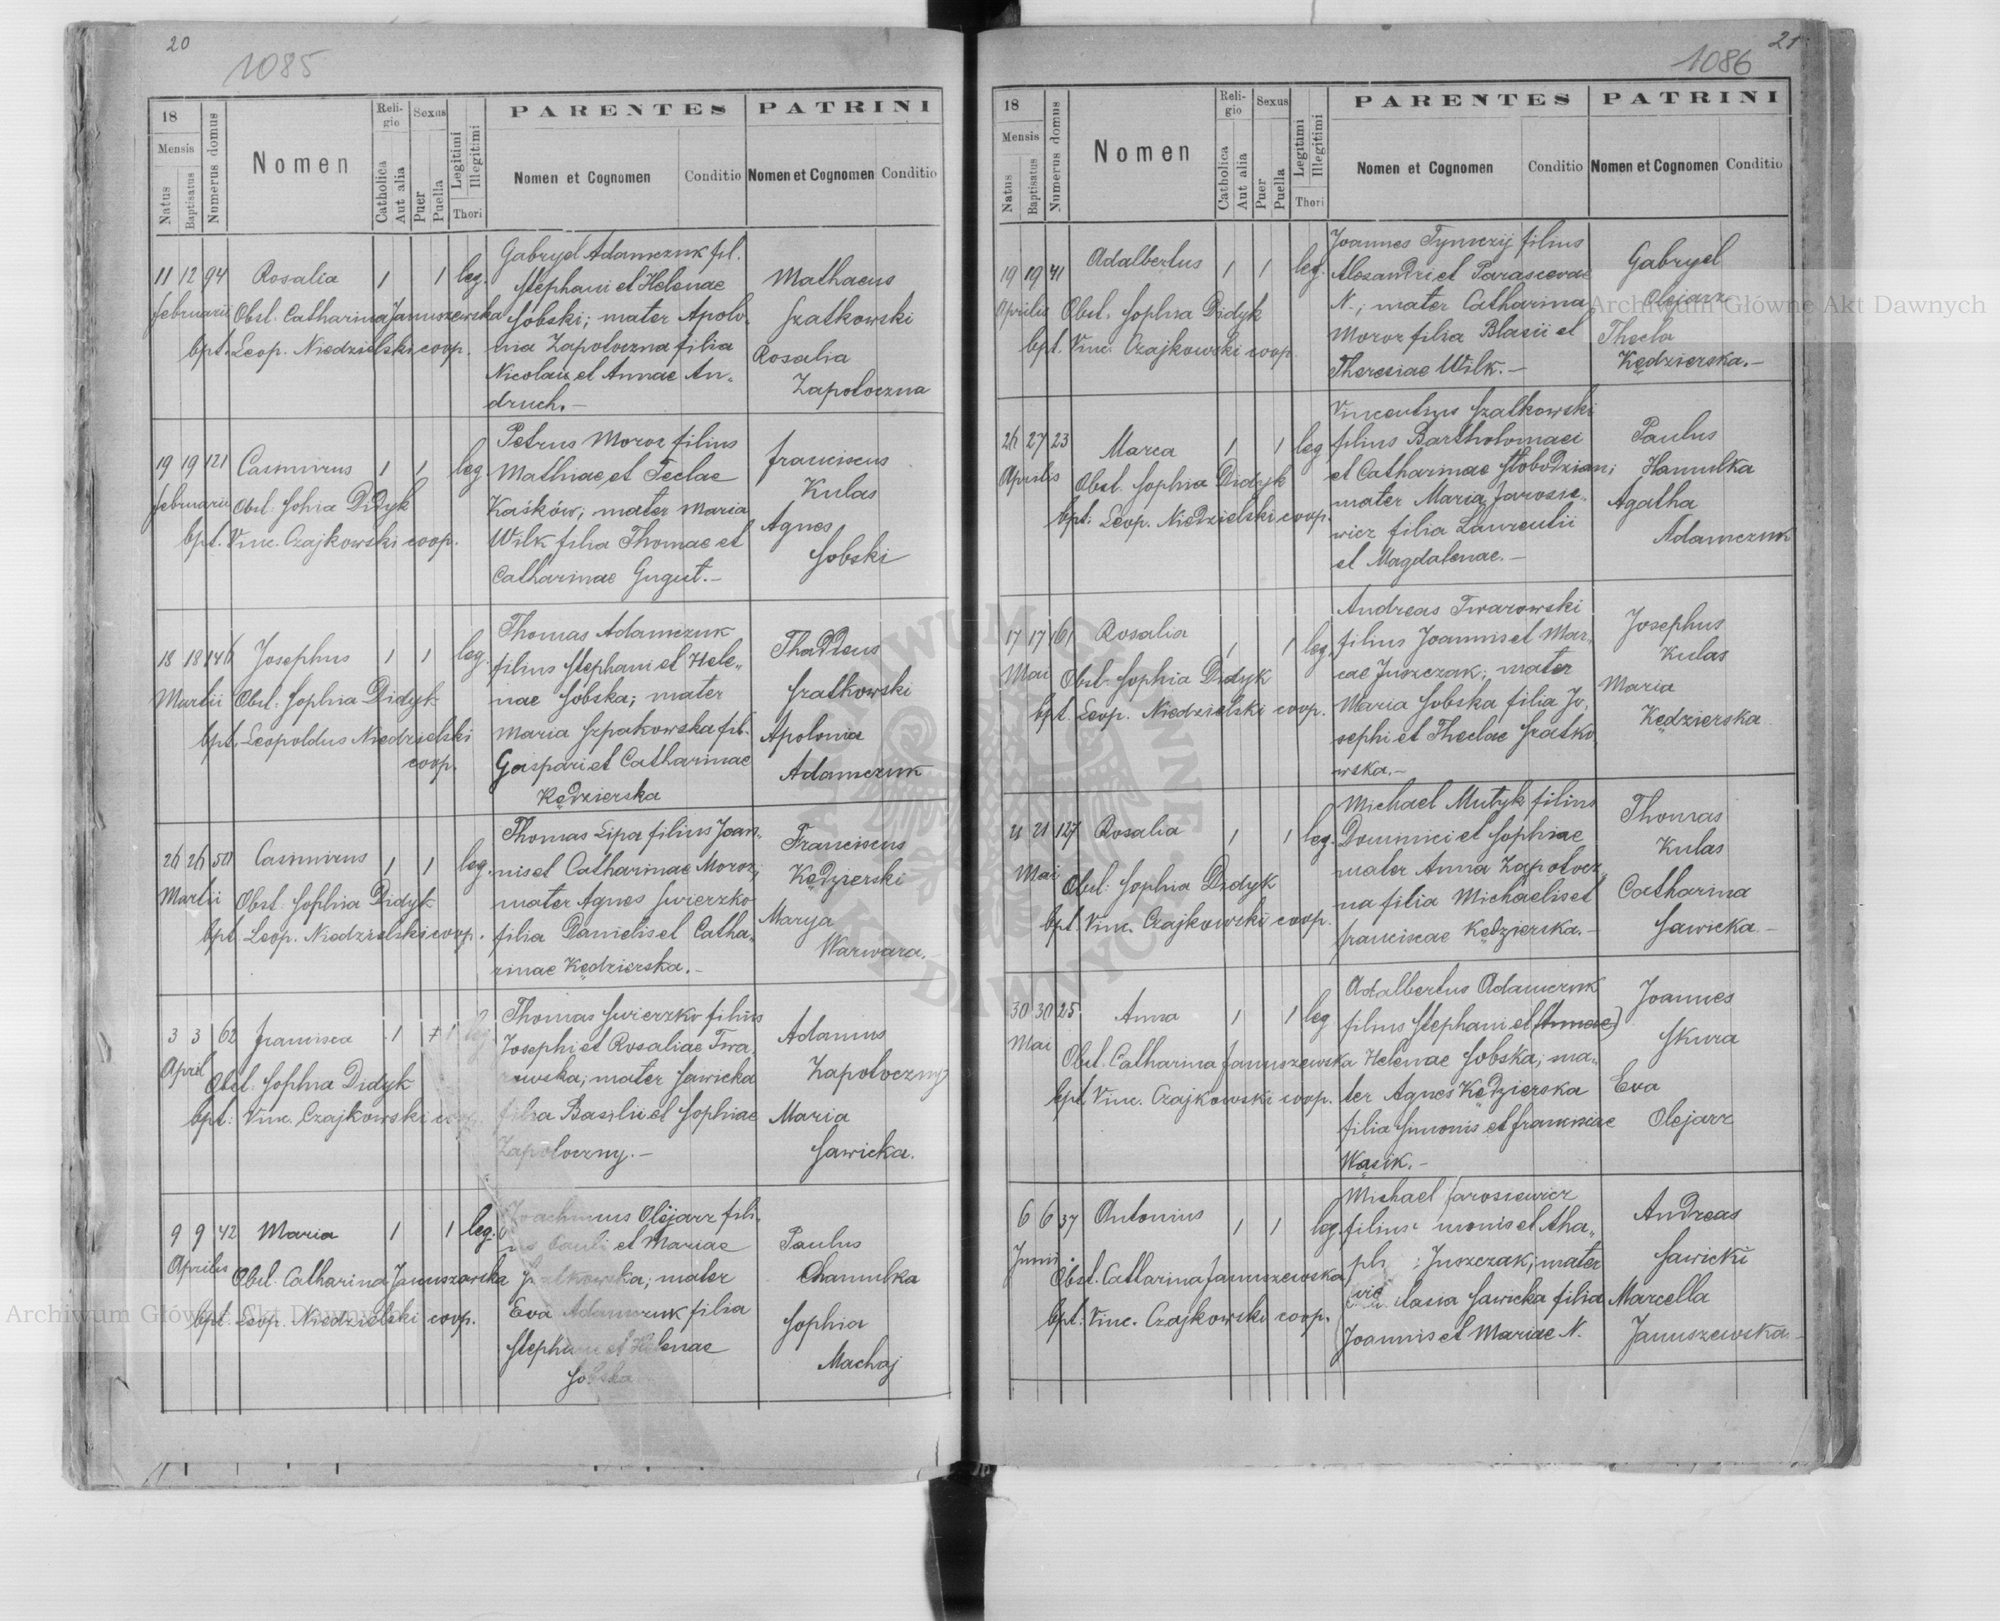 20
1085
18
Mensis
Natus
Baptisatus
Numerus domus
Nomen
Religio
Catholica
Aut alia
Sexus
Puer
Puella
Legitimi
Illegitimi
Thori
PARENTES
Nomen et Cognomen
Conditio
PATRINI
Nomen et Cognomen
Conditio
11 12 94 Rosalia 1 1 leg.
Februarii Obst. Catharina Januszewska
bpt. Leop. Niedzielski coop.
Gabryel Adamczuk fil.
Stephani et Helenae
Sobski; mater Apolo-
nia Zapoloczna filia
Nicolai et Annae An-
druch.-
Mathaeus
Szatkowski
Rosalia
Zapoloczna
19 19 121 Casimirus 1 1 leg.
Februarii Obst. Sohia Didyk
bpt. Vinc. Czajkowski coop.
Petrus Moroz filius
Mathiae et Teclae
Kaśków; mater Maria
Wilk filia Thomae et
Catharinae Gugut.-
Franciscus
Kulas
Agnes
Sobski
18 18 146 Josephus 1 1 leg.
Martii Obst. Sophia Didyk
bpt. Leopoldus Niedzielski
coop.
Thomas Adamczuk
filius Stephani et Hele-
nae Sobska; mater
Maria Szpakowska fil.
Gaspari et Catharinae
Kędzierska
Thaddeus
Szatkowski
Apolonia
Adamczuk
26 26 50 Casimirus 1 1 leg.
Martii Obst. Sophia Didyk
bpt. Leop. Niedzielski coop.
Thomas Lipa filius Joan-
nis et Catharinae Moroz;
mater Agnes Swierzko
filia Danielis et Catha-
rinae Kędzierska.-
Franciscus
Kędzierski
Marya
Warwara.-
3 3 62 Francisca 1 1 leg
April Obst. Sophia Didyk
bpt. Vinc. Czajkowski coop.
Thomas Swierzko filius
Josephi et Rosaliae Twa-
rowska; mater Sawicka
filia Basilii et Sophiae
Zapoloczny.-
Adamus
Zapoloczny
Maria
Sawicka.
9 9 42 Maria 1 1 leg.
Aprilis Obst. Catharina Januszewska
bpt. Leop. Niedzielski coop.
Joachimus Olejarz fili-
us Pauli et Mariae
Szatkowska; mater
Eva Adamczuk filia
Stephani et Helenae
Sobska
Paulus
Chamulka
Sophia
Machaj
21
1086
18
Mensis
Natus
Baptisatus
Numerus domus
Nomen
Religio
Catholica
Aut alia
Sexus
Puer
Puella
Legitumi
Illegitimi
Thori
PARENTES
Nomen et Cognomen
Conditio
PATRINI
Nomen et Cognomen
Conditio
19 19 41 Adalbertus 1 1 leg.
Aprilis Obst. Sophia Didyk
bpt. Vinc. Czajkowski coop.
Joannes Tymczij filius
Alexandri et Parascevae
N.; mater Catharina
Moroz filia Blasii et
Theresiae Wilk.-
Gabryel
Olejarz
Thecla
Kędzierska.-
26 27 23 Marca 1 1 leg
Aprilis Obst. Sophia Didyk
bpt. Leop. Niedzielski coop.
Vincentius Szatkowski
filius Bartholomaei
et Catharinae Słobodzian;
mater Maria Jarosse-
wicz filia Laurentii
et Magdalenae.-
Paulus
Hamulka
Agatha
Adamczuk
17 17 161 Rosalia 1 1 leg.
Mai Obst. Sophia Didyk
bpt. Leop. Niedzielski coop.
Andreas Twarowski
filius Joannis et Mar-
cae Juszczak; mater
Maria Sobska filia Jo-
sephi et Theclae Szatko-
wska.-
Josephus
Kulas
Maria
Kędzierska
21 21 127 Rosalia 1 1 leg.
Mai Obst. Sophia Didyk
bpt. Vinc. Czajkowski coop.
Michael Mutyk filius
Dominici et Sophiae
mater Anna Zapolocz-
na filia Michaelis et
Franciscae Kędzierska.-
Thomas
Kulas
Catharina
Sawicka.-
30 30 25 Anna 1 1 leg
Mai Obst. Catharina Januszewska
bpt. Vinc. Czajkowski coop.
Adalbertus Adamczuk
filius Stephani et (Annae)
Helenae Sobska; ma-
ter Agnes Kędzierska
filia Simonis et Franciscae
Wąsik.-
Joannes
Skura
Eva
Olejarz
6 6 37 Antonius 1 1 leg.
Junii Obst. Catharina Januszewska
bpt. Vinc. Czajkowski coop.
Michael Jarosiewicz
filius monis et Aha-
ph Juszczak; mater
lasia Sawicka filia
Joannis et Mariae N.
Andreas
Sawicki
Marcella
Januszewska.-
Archiwum Główne Akt Dawnych
Archiwum Główne Akt Dawnych
ARCHIWUM GŁÓWNE AKT DAWNYCH